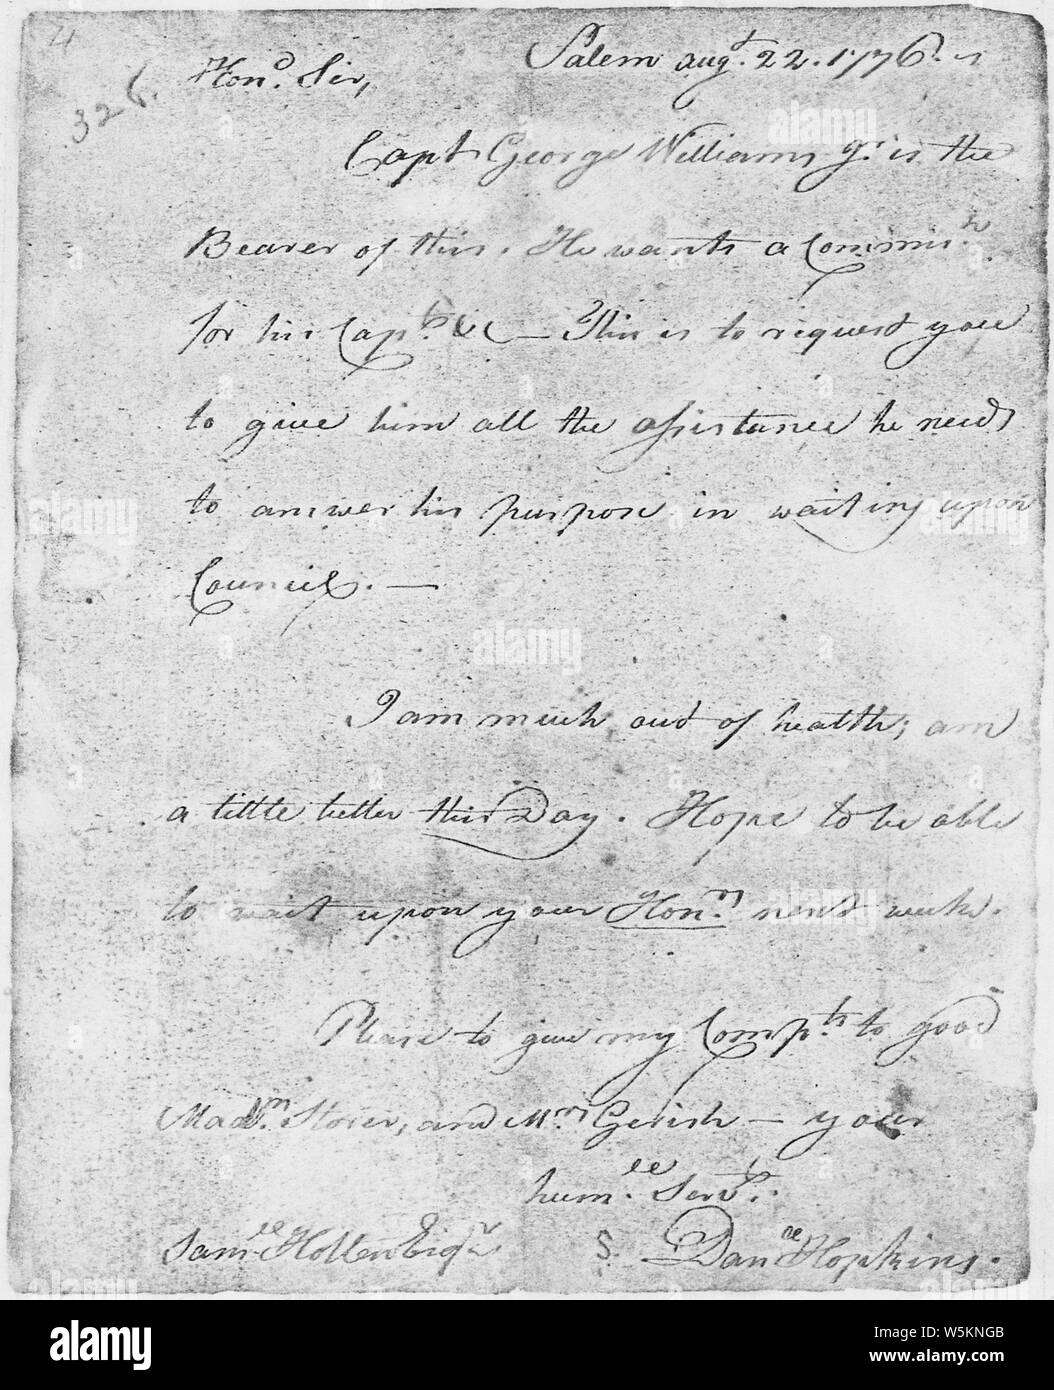 4
326.
Salem augt. 22. 1776.
Hond. Sir,
Capt George Williams jr. is the
Bearer of this. He wants a Commisn.
for his Capt. &c — This is to request you
to give him all the assistance he needs
to answer his purpose in waiting upon
Council. —
I am much out of health; am
a little better this Day. Hope to be able
to wait upon your Honr. next week.
Please to give my Compts. to good
Madm. Storer, and Mrs Gerish — your
humlee. Servt.
Samlee Holten Esqr
S. Danee Hopkins.
alamy
Image ID: W5KNGB
www.alamy.com